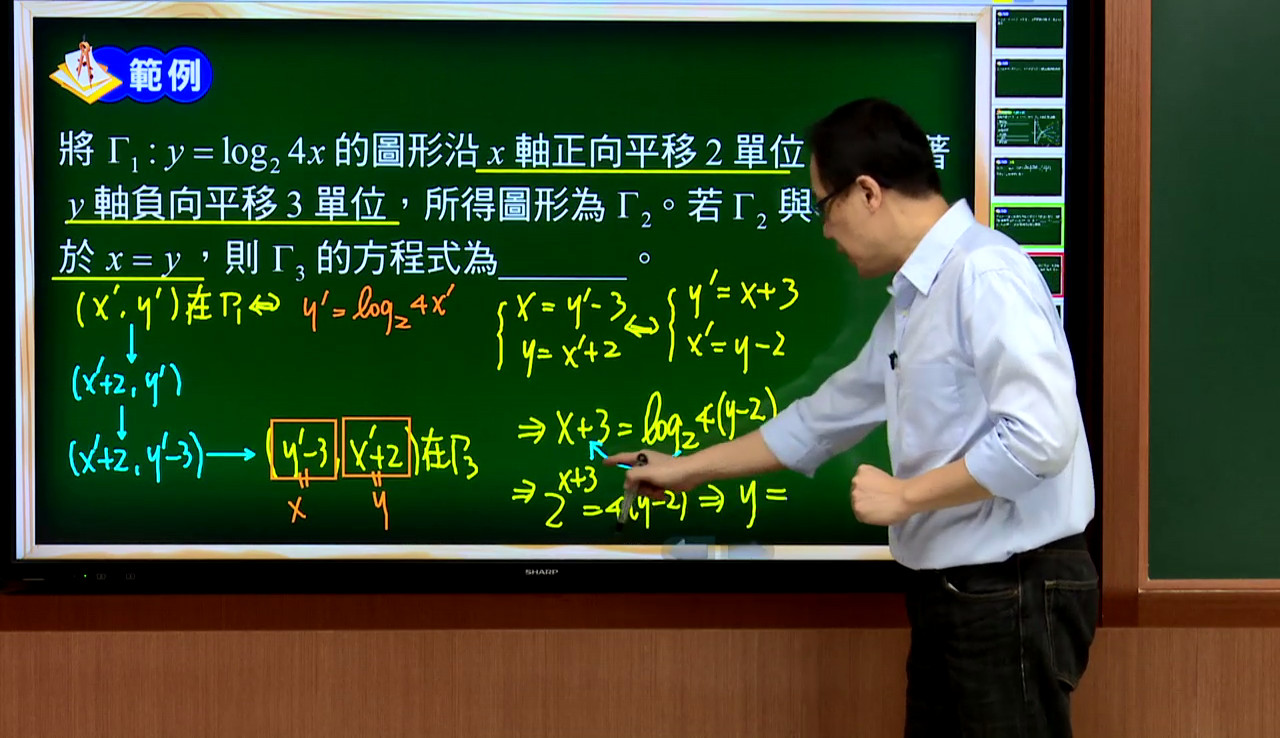 範例
將 Γ₁ : y = log₂ 4x 的圖形沿 x 軸正向平移 2 單位 著
y 軸負向平移 3 單位，所得圖形為 Γ₂。若 Γ₂ 與
於 x = y，則 Γ₃ 的方程式為________。
(x', y')在Γ₁ ⇔ y' = log₂4x'
↓
(x'+2, y')
↓
(x'+2, y'-3) → (y'-3, x'+2)在Γ₃
x y
{ x = y'-3 ⇔ { y' = x+3
y = x'+2 x' = y-2
⇒ x+3 = log₂4(y-2)
⇒ 2^(x+3) = 4(y-2) ⇒ y =
SHARP